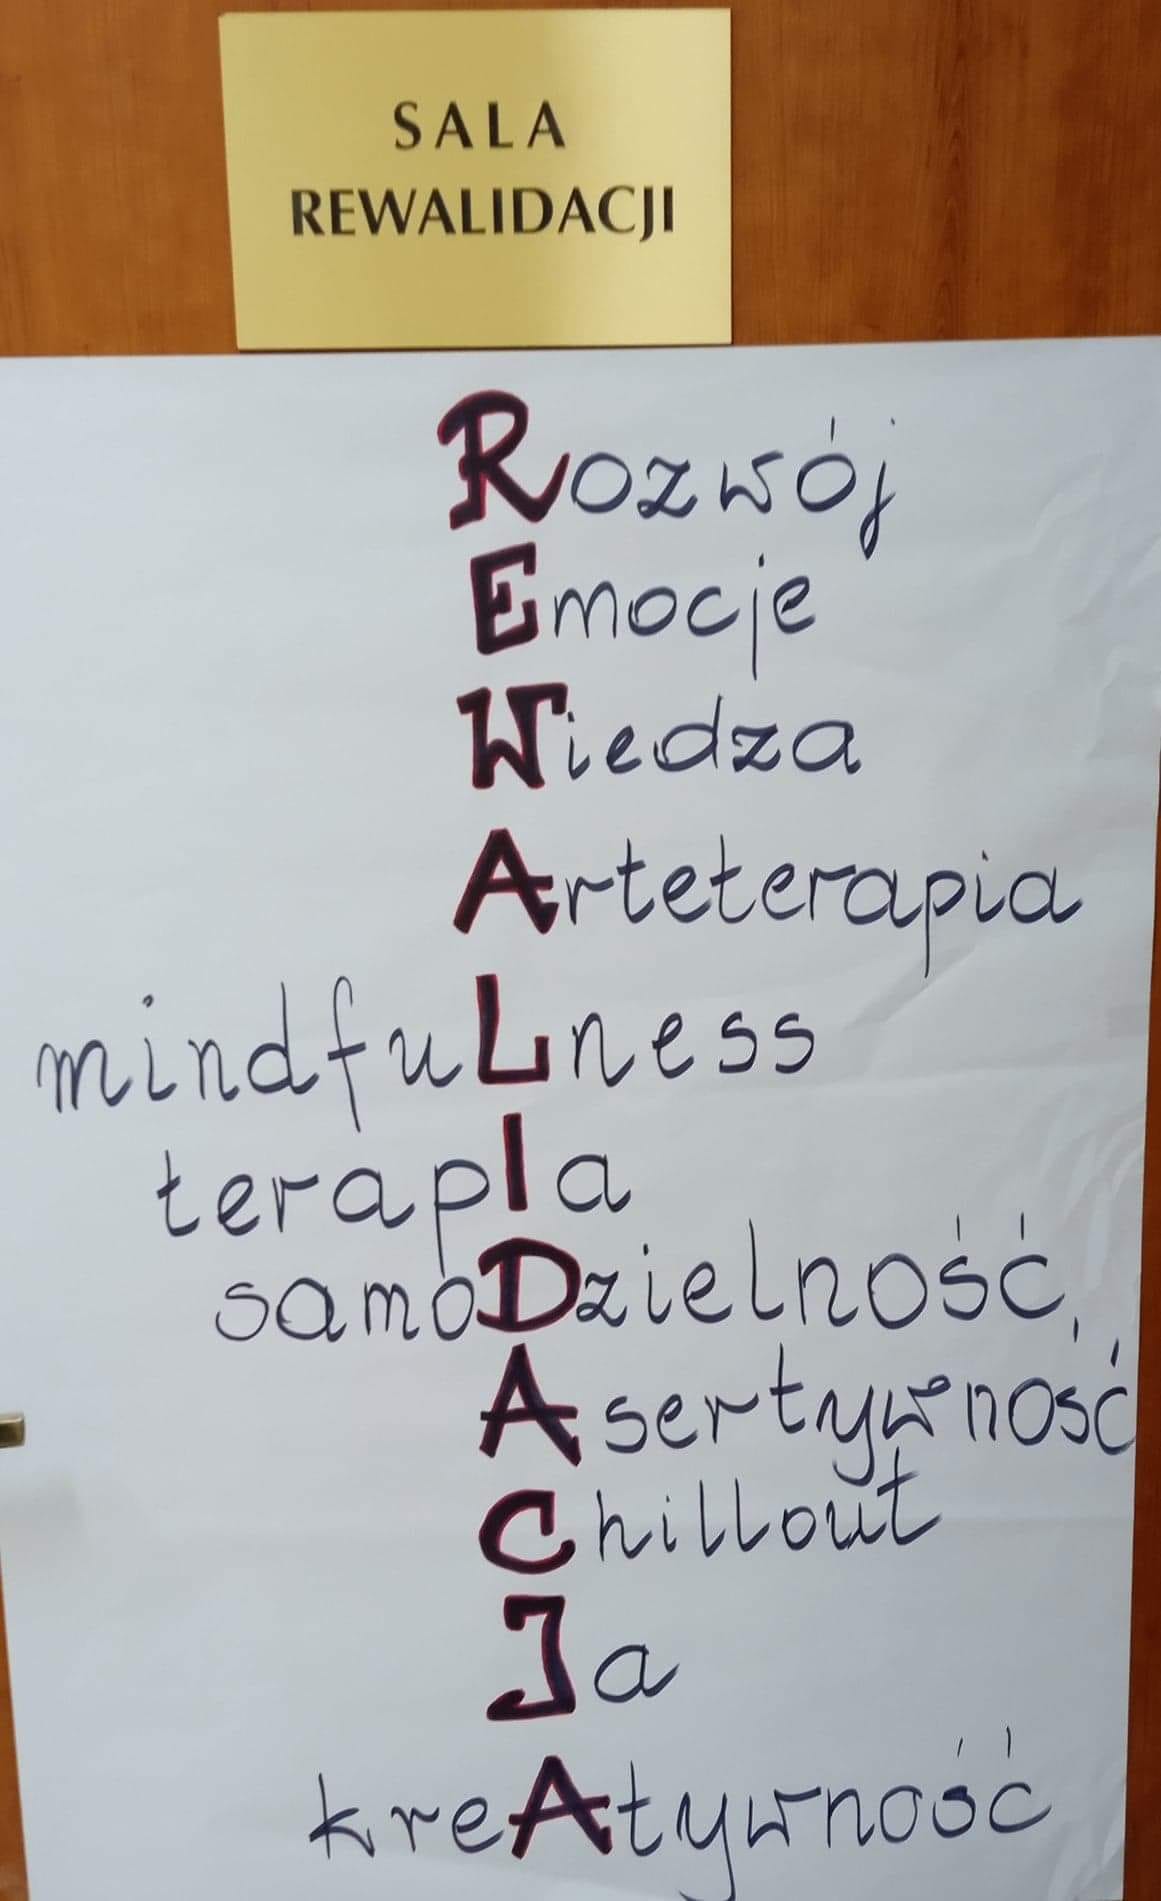 SALA
REWALIDACJI
Rozwój
Emocje
Wiedza
Arteterapia
mindfuLness
terapIa
samoDzielność,
Asertywność
Chillout
Ja
kreAtywność